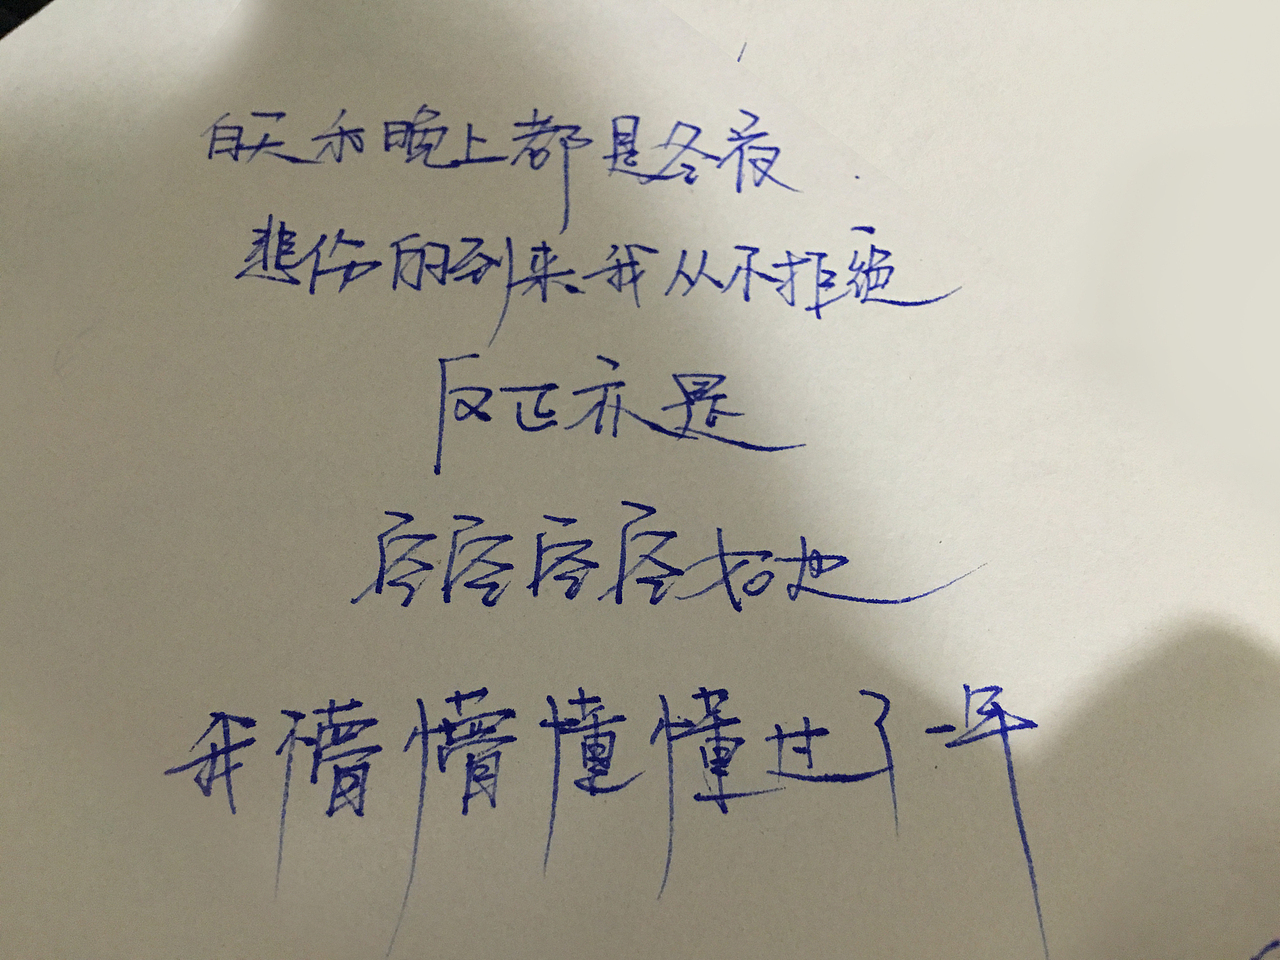 白天和晚上都是冬夜
悲伤的到来我从不拒绝
反正亦是
空空空空如也
我懵懵懂懂过了一年